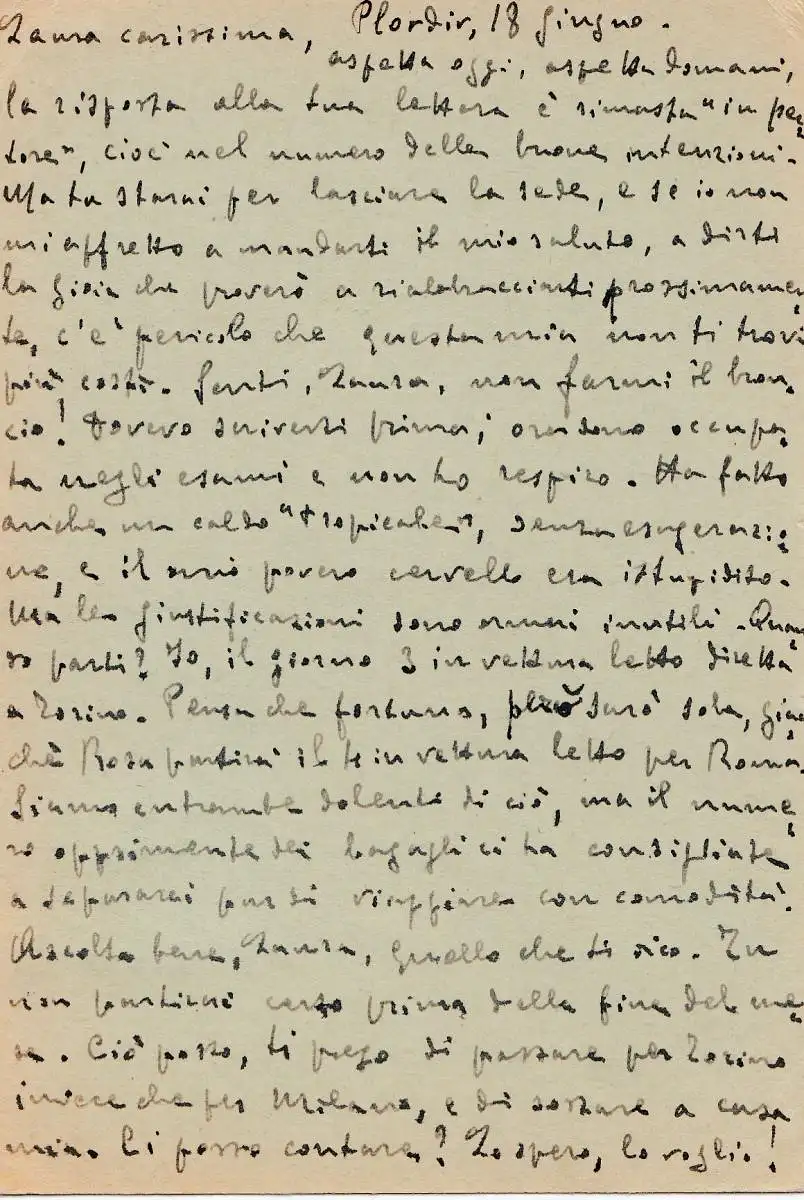 Laura carissima, Plovdiv, 18 giugno.
aspetta oggi, aspetta domani,
la risposta alla tua lettera è rimasta "in pec-
tore", cioè nel numero delle buone intenzioni.
Ma tu starai per lasciare la sede, e se io non
mi affretto a mandarti il mio saluto, a dirti
la gioia che proverò a riabbracciarti prossimamen-
te, c'è pericolo che questa mia non ti trovi
più costì. Senti, Laura, non farmi il bron-
cio! Dovevo scriverti prima; ora sono occupa-
ta negli esami e non ho respiro. Ha fatto
anche un caldo "tropicale", senza esagerazio-
ne, e il mio povero cervello era istupidito.
Ma le giustificazioni sono ormai inutili. Quan-
do parti? Io, il giorno 3 in vettura letto diretta
a Torino. Pensa che fortuna, però sarò sola, giac-
chè Rosa partirà il 4 in vettura letto per Roma.
Siamo entrambe dolenti di ciò, ma il nume-
ro opprimente dei bagagli ci ha consigliate
a separarci pur di viaggiare con comodità.
Ascolta bene, Laura, quello che ti dico. Tu
non partirai certo prima della fine del me-
se. Ciò posto, ti prego di passare per Torino
invece che per Milano, e di sostare a casa
mia. Ci posso contare? Lo spero, lo voglio!